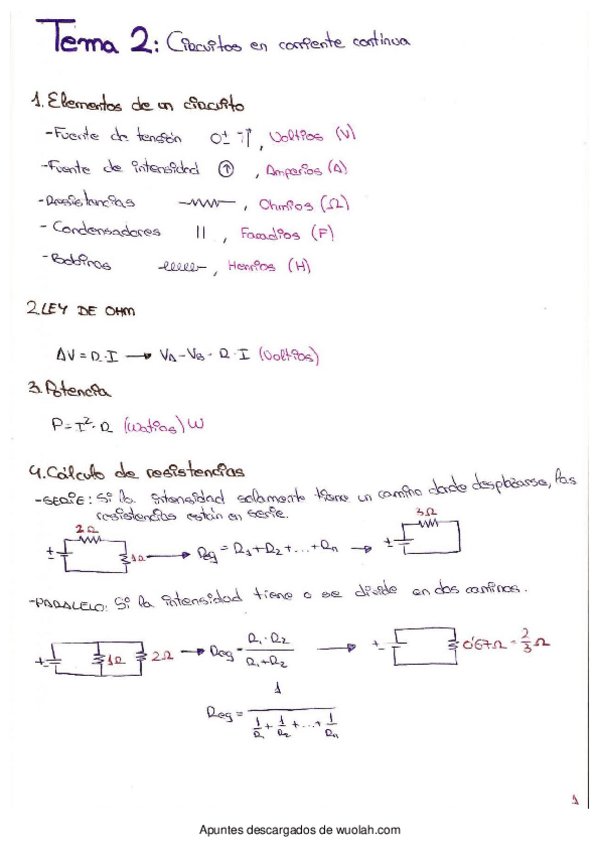 Tema 2: Circuitos en corriente continua
1. Elementos de un circuito
-Fuente de tensión , Voltios (V)
-Fuente de intensidad , Amperios (A)
-Resistencias , Ohmios (Ω)
- Condensadores , Faradios (F)
-Bobinas , Henrios (H)
2. LEY DE OHM
ΔV = R·I → VA - VB = R·I (Voltios)
3. Potencia
P = I²·R (Watios) W
4. Cálculo de resistencias
-SERIE: Si la intensidad solamente tiene un camino donde desplazarse, las
resistencias están en serie.
2Ω 1Ω → Req = R1 + R2 + ... + Rn → 3Ω
-PARALELO: Si la intensidad tiene o se divide en dos caminos.
1Ω 2Ω → Req = R1·R2 / R1+R2 → 0'67Ω = 2/3 Ω
Req = 1 / 1/R1 + 1/R2 + ... + 1/Rn
1
Apuntes descargados de wuolah.com